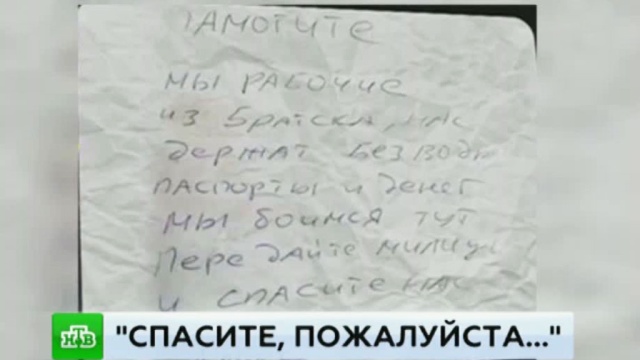 ПАМОГИТЕ
МЫ РАБОЧИЕ
ИЗ БРАТСКА, НАС
ДЕРЖАТ БЕЗ ВОДЫ
ПАСПОРТЫ И ДЕНЕГ
МЫ БОИМСЯ ТУТ
ПЕРЕДАЙТЕ МИЛИЦИ
И СПАСИТЕ НАС
НТВ
"СПАСИТЕ, ПОЖАЛУЙСТА..."